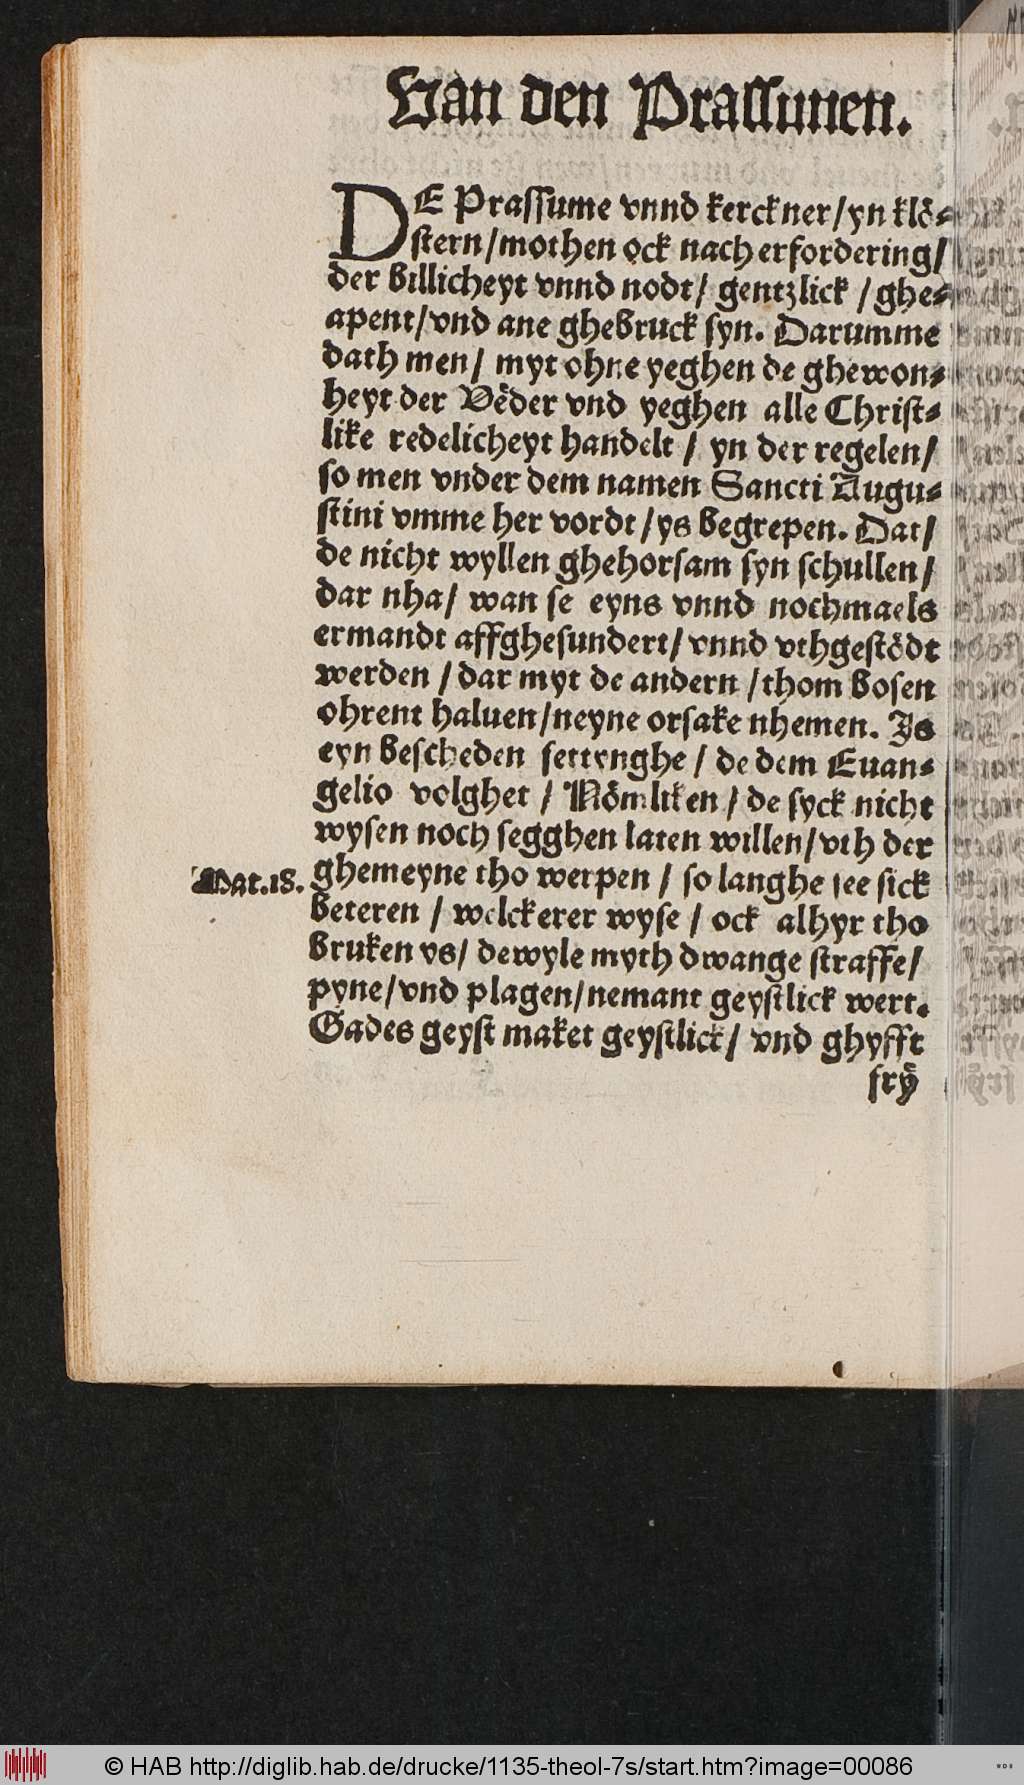 Van den Prassunen.
DE Prassume vnnd kerckner/yn klö-
stern/mothen ock nach erfordering/
der billicheyt vnnd nodt/ gentzlick / ghe-
apent/vnd ane ghebruck syn. Darumme
dath men/ myt ohne yeghen de ghewon-
heyt der Veder vnd yeghen alle Christ-
like redelicheyt handelt / yn der regelen/
so men vnder dem namen Sancti Augu-
stini vmme her vordt/ys begrepen. Dat/
de nicht wyllen ghehorsam syn schullen/
dar nha/ wan se eyns vnnd nochmaels
ermandt affghesundert/ vnnd vthgestödt
werden / dar myt de andern /thom bosen
ohrent haluen/neyne orsake nhemen. Js
eyn bescheden settynghe / de dem Euan-
gelio volghet / Nömliken / de syck nicht
wysen noch segghen laten willen/vth der
Mat.18. ghemeyne tho werpen / so langhe see sick
beteren / welckerer wyse / ock alhyr tho
bruken ys/ dewyle myth dwange straffe/
pyne/vnd plagen/nemant geystlick wert.
Gades geyst maket geystlick/ vnd ghyfft
frÿ
© HAB http://diglib.hab.de/drucke/1135-theol-7s/start.htm?image=00086